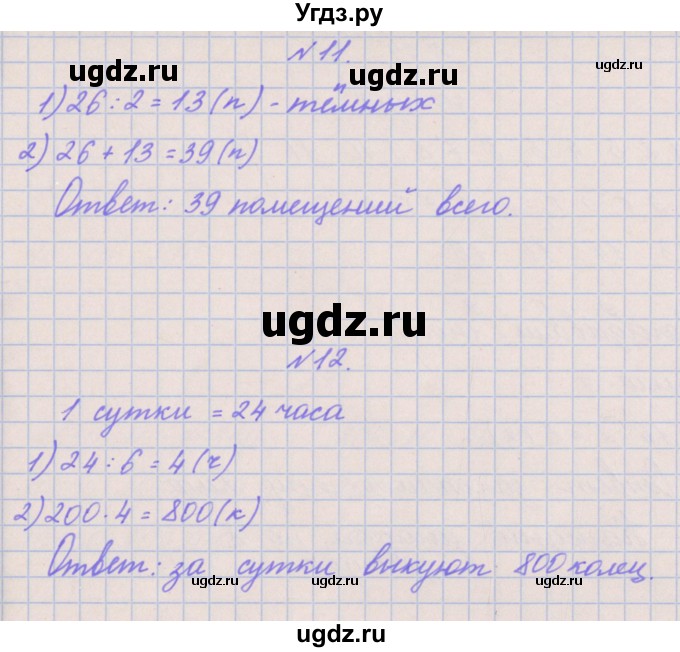 Угдз.ру
№11.
ugdz.ru ugdz.ru
1) 26 : 2 = 13 (п) - тёмных
2) 26 + 13 = 39 (п)
Ответ: 39 помещений всего.
ugdz.ru
№12.
1 сутки = 24 часа
1) 24 : 6 = 4 (ч)
2) 200 · 4 = 800 (к)
Ответ: за сутки выкуют 800 колец.
ugdz.ru ugdz.ru ugdz.ru ugdz.ru
ugdz.ru